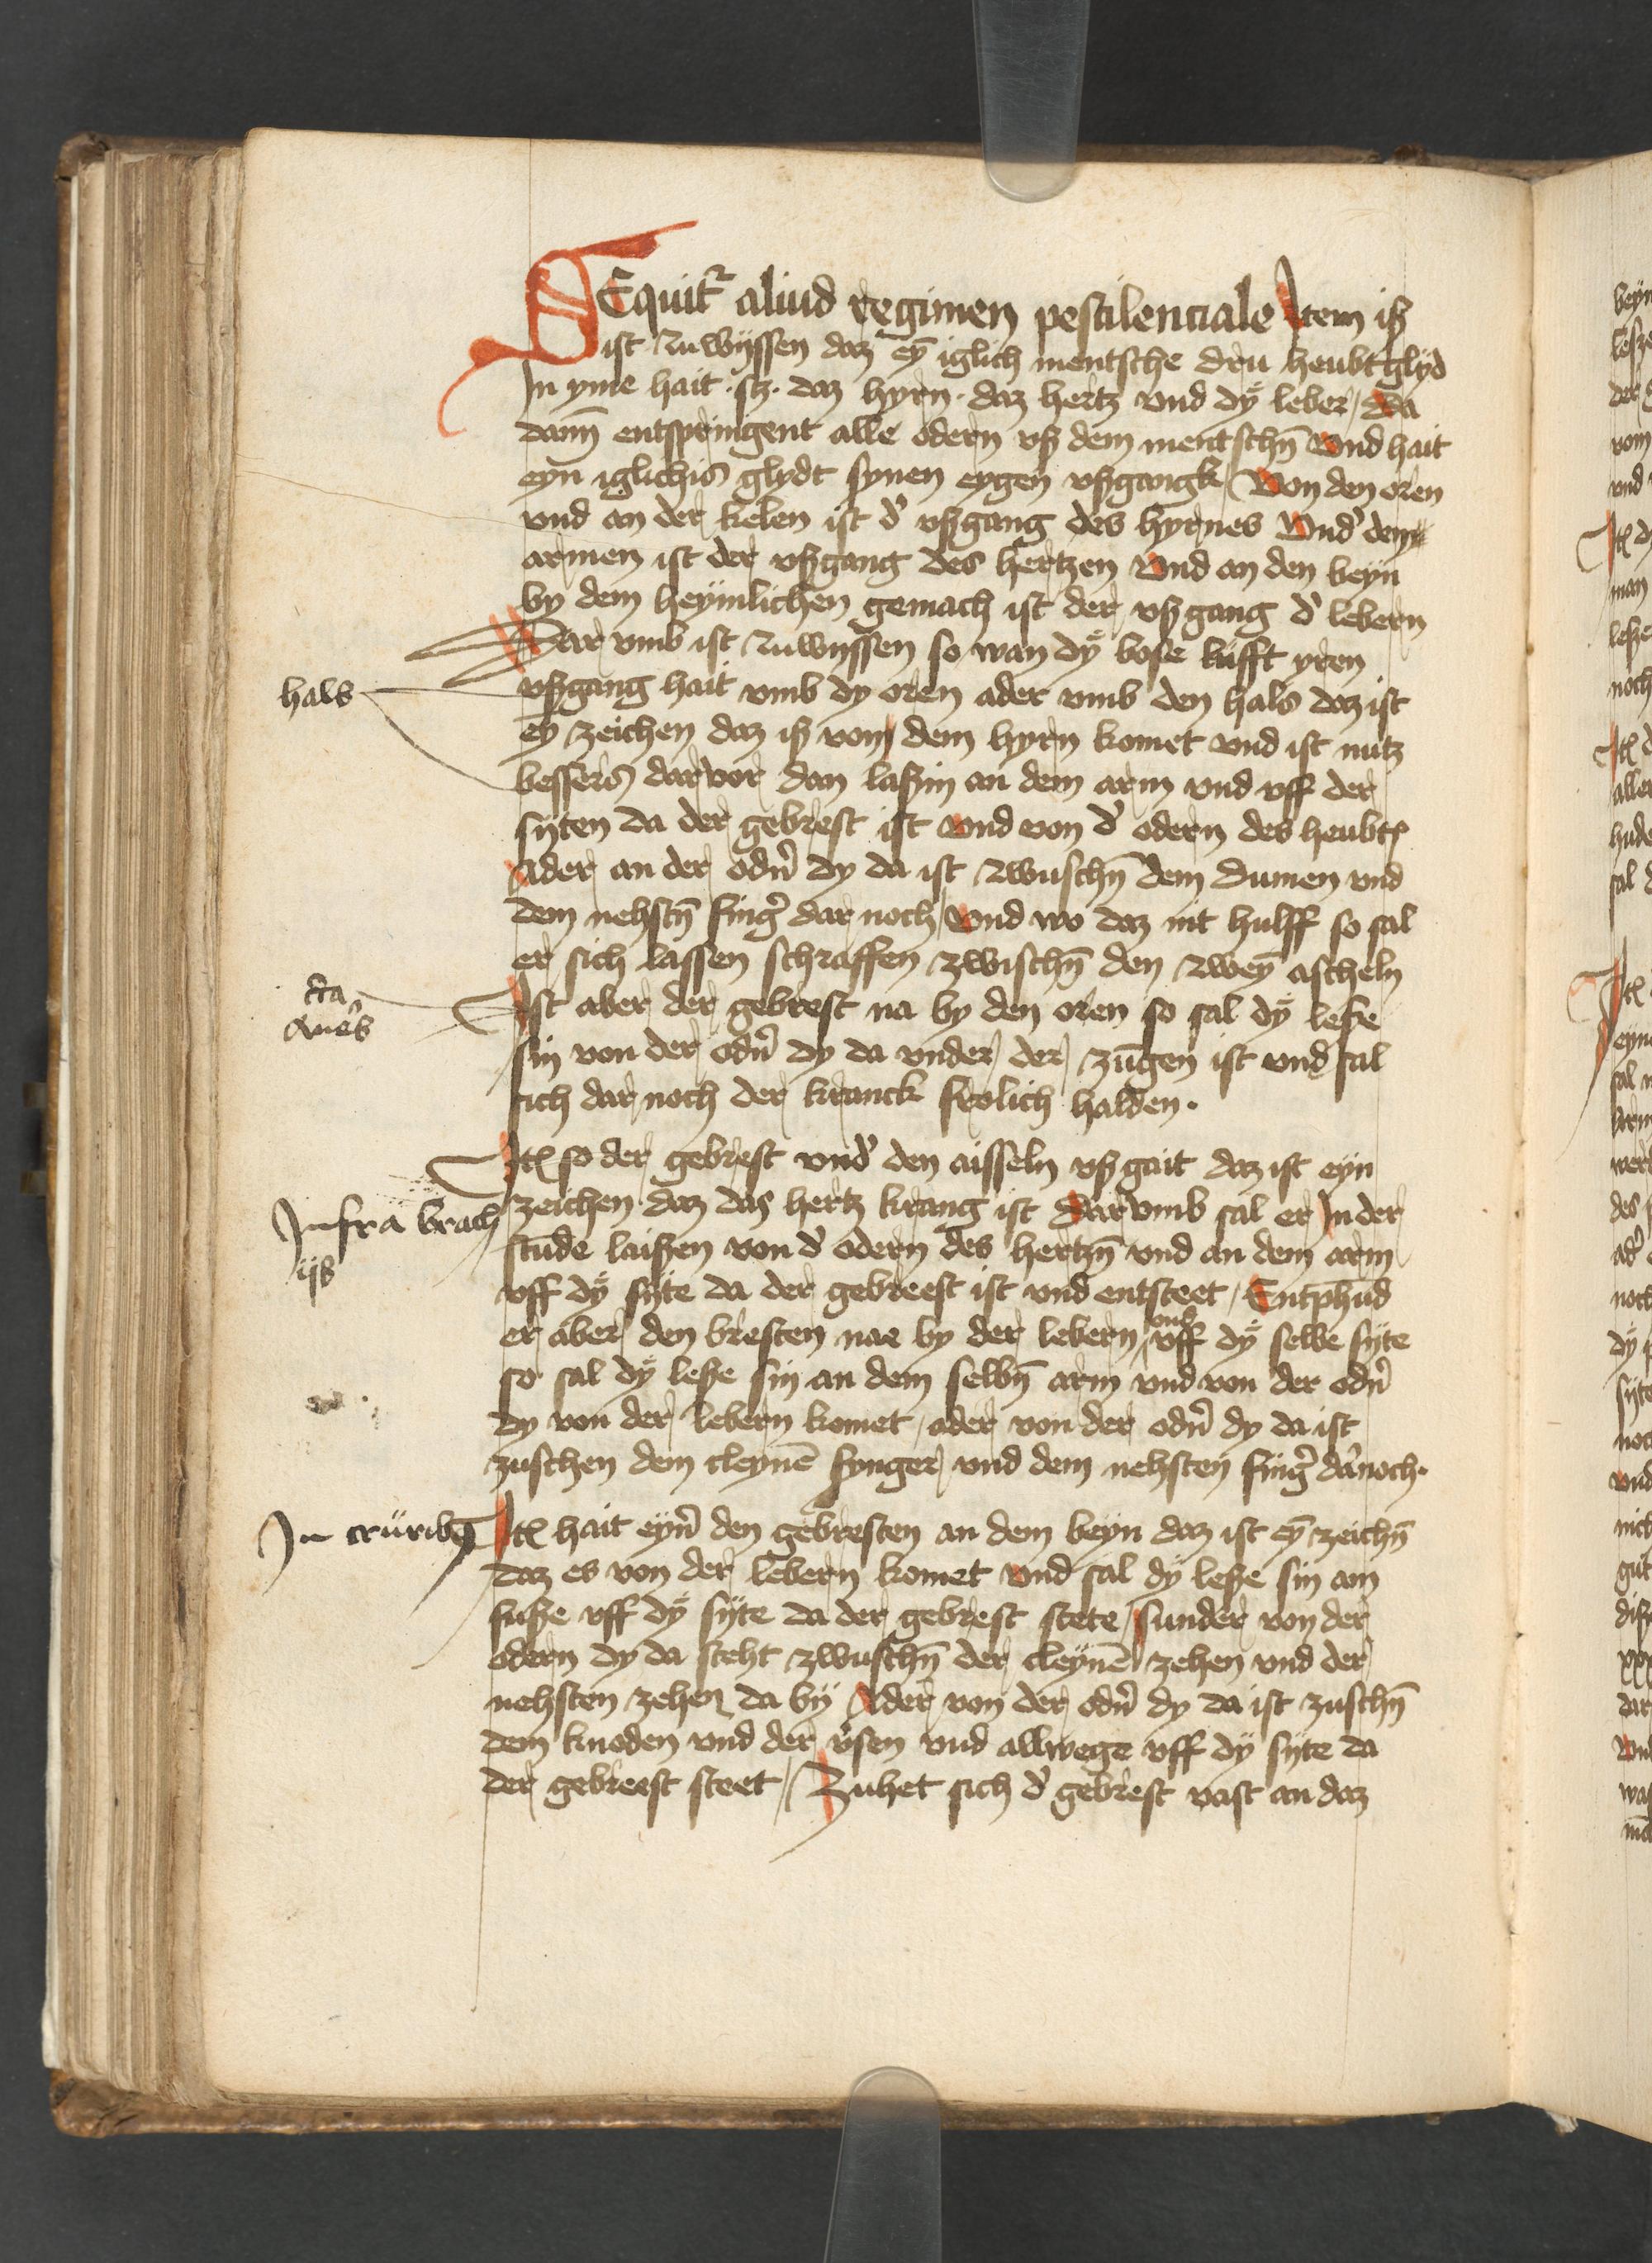 SEquitr aliud regimen pestilenciale Item iß
ist zu wyssen daz eȳ iglich mentsche dru heubt glyd
In yme hait .sz. daz hyrn . daz hertz vnd dy leber / Da
dann̄ entspringent alle odern vß dem mentschn̄ Vnd hait
eyn iglichis glydt synen eygen vßgangk Von den oren
vnd an der kelen ist d' vßgang des hyrnes Vnd' dem
armen ist der vßgang des hertzen Vnd an den beyn
by dem heymlichen gemach ist der vßgang d' lebern
Dar vmb ist zu wyssen so wan dy bose lufft yren
hals
vßgang hait vmb dy oren ader vmb den hals daz ist
eȳ zeichen daz iß vom dem hyrn komet vnd ist nutz
bessers dar vor dan laßin an dem arm vnd vff der
syten da der gebrest ist Vnd von d' odern des heubtz
Ader an der odn̄ dy da ist zwuschn̄ dem dumen vnd
dem nehstn̄ fing' dar noch / Vnd wo daz nit hulff so sal
er sich lassen schraffen zwischn̄ den zweȳ ascheln
Ist aber der gebrest na by den oren so sal dy leße
sin von der odn̄ dy da vnder der zūgen ist vnd sal
sich dar noch der kranck frolich halden .
Itz so der gebrest vnd' den aisseln vß gait daz ist eyn
Infra brach
ijs
zeichen daz das hertz krang ist Dar vmb sal er In der
stude laißen von d' odern des hertzn̄ vnd an dem arm
vff dy syte da der gebreest ist vnd entsteet / Entphud
er aber den bresten nae by der lebern / vnd vff dy selbe syte
so sal dy leße sin an dem selbn̄ arm vnd von der odn̄
dy von der lebern komet / oder von der odn̄ dy da ist
zuschen dem cleynē fynger vnd dem nehsten fing' dar noch .
In crurib9
Itz hait eyn' den gebresten an dem beyn daz ist eȳ zeichn̄
daz es von der lebern komet Vnd sal dy leße sin am
fuße vff dy syte da der gebrest stete / sunder von der
odern dy da steht zwuschn̄ der cleynē zehen vnd der
nehsten zehen da by Ader von der odn̄ dy da ist zuschn̄
dem knoden vnd der v'sen vnd allwege vff dy syte da
der gebreest steet / Zuhet sich d' gebrest vast an daz